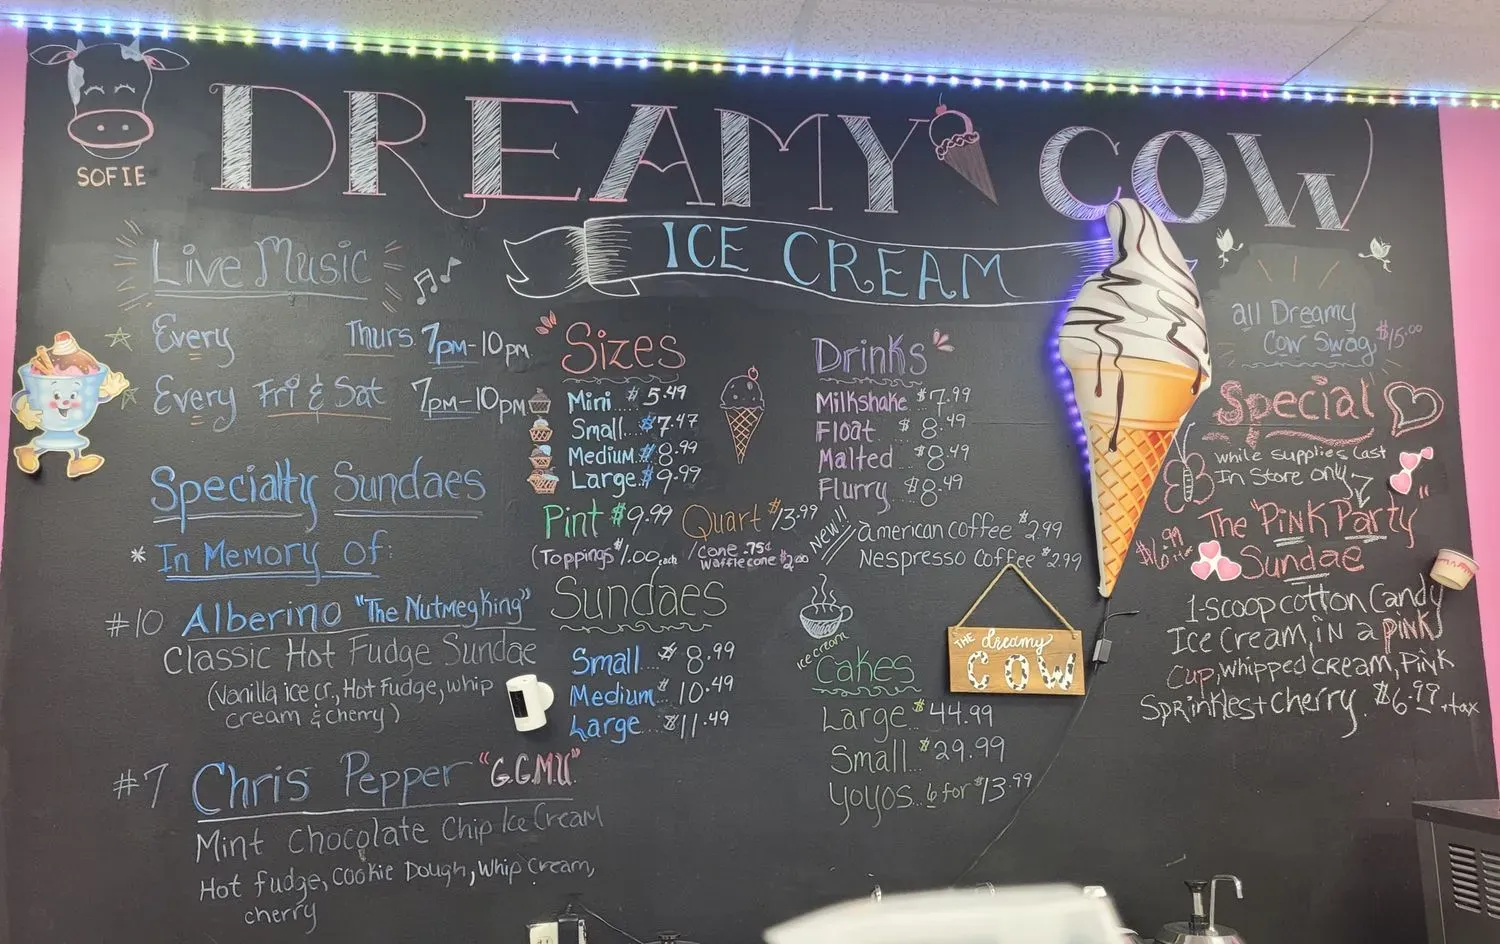 SOFIE
DREAMY COW
ICE CREAM
Live Music
Every Thurs 7pm-10pm
Every Fri & Sat 7pm-10pm
Specialty Sundaes
* In Memory of:
#10 Alberino "The Nutmeg King"
Classic Hot Fudge Sundae
(Vanilla ice cr., Hot Fudge, whip
cream & cherry)
#7 Chris Pepper "G.G.M.U"
Mint Chocolate Chip Ice Cream
Hot fudge, Cookie Dough, Whip Cream,
cherry
Sizes
Mini.... $5.49
Small... $7.47
Medium.. $8.99
Large.. $9.99
Pint $9.99 Quart $13.99
(Toppings $1.00 each / Cone .75¢
Waffle cone $2.00
Sundaes
Small... $8.99
Medium $10.49
Large... $11.49
Drinks
Milkshake $7.99
Float ... $8.49
Malted ... $8.49
Flurry .. $8.49
New!! american coffee $2.99
Nespresso Coffee $2.99
ice cream
Cakes
Large $44.99
Small.. $29.99
YoYos.. 6 for $13.99
THE dreamy
COW
all Dreamy
Cow Swag $15.00
Special
while supplies last
In Store only
The "Pink Party"
$6.99 Sundae
1-scoop cotton Candy
Ice Cream, in a pink
Cup, whipped cream, Pink
Sprinkles + Cherry. $6.99 + tax